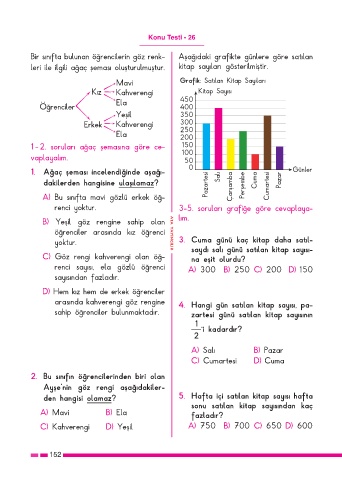 Konu Testi - 26
Bir sınıfta bulunan öğrencilerin göz renk-
leri ile ilgili ağaç şeması oluşturulmuştur.
Mavi
Kız Kahverengi
Ela
Öğrenciler
Yeşil
Erkek Kahverengi
Ela
1-2. soruları ağaç şemasına göre ce-
vaplayalım.
1. Ağaç şeması incelendiğinde aşağı-
dakilerden hangisine ulaşılamaz?
A) Bu sınıfta mavi gözlü erkek öğ-
renci yoktur.
B) Yeşil göz rengine sahip olan
öğrenciler arasında kız öğrenci
yoktur.
C) Göz rengi kahverengi olan öğ-
renci sayısı, ela gözlü öğrenci
sayısından fazladır.
D) Hem kız hem de erkek öğrenciler
arasında kahverengi göz rengine
sahip öğrenciler bulunmaktadır.
2. Bu sınıfın öğrencilerinden biri olan
Ayşe'nin göz rengi aşağıdakiler-
den hangisi olamaz?
A) Mavi B) Ela
C) Kahverengi D) Yeşil
Aşağıdaki grafikte günlere göre satılan
kitap sayıları gösterilmiştir.
Grafik: Satılan Kitap Sayıları
Kitap Sayısı
450
400
350
300
250
200
150
100
50
0
Günler
Pazartesi
Salı
Çarşamba
Perşembe
Cuma
Cumartesi
Pazar
3-5. soruları grafiğe göre cevaplaya-
lım.
3. Cuma günü kaç kitap daha satıl-
saydı salı günü satılan kitap sayısı-
na eşit olurdu?
A) 300 B) 250 C) 200 D) 150
4. Hangi gün satılan kitap sayısı, pa-
zartesi günü satılan kitap sayısının
1
2
'i kadardır?
A) Salı B) Pazar
C) Cumartesi D) Cuma
5. Hafta içi satılan kitap sayısı hafta
sonu satılan kitap sayısından kaç
fazladır?
A) 750 B) 700 C) 650 D) 600
152